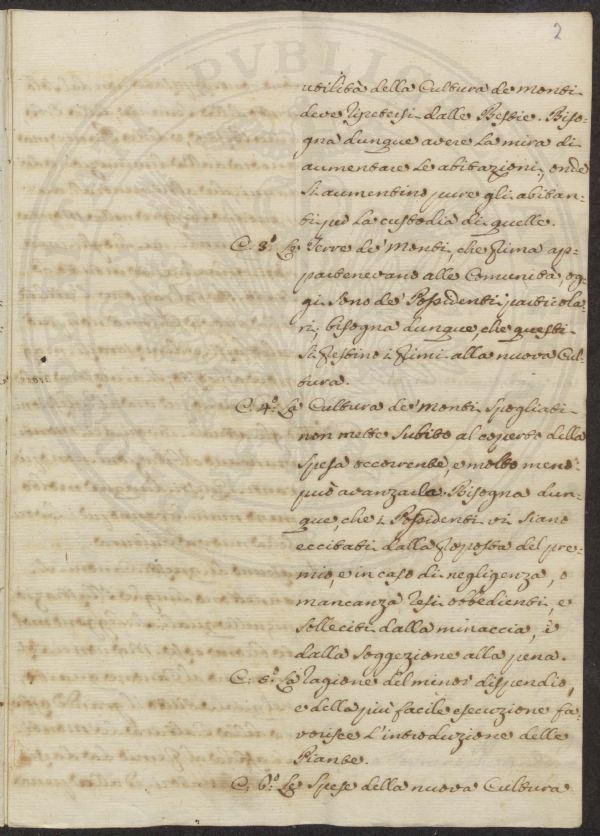 2
utilità della Cultura de monti
deve ripetersi dalle Bestie. Biso-
gna dunque avere la mira di
aumentare le abitazioni, onde
si aumentino pure gli abitan-
ti per la custodia di quelle.
C. 3.º Le Terre de' Monti, che prima ap-
partenevano alle Comunità, og-
gi sono de' Possidenti particola-
ri; bisogna dunque, che questi
si prestino i primi alla nuova Cul-
tura.
C. 4.º La Cultura de' Monti spogliati
non mette subito al coperto della
spesa occorrente, e molto meno
può avanzarla. Bisogna dun-
que, che i Possidenti vi siano
eccitati dalla proposta del pre-
mio, e in caso di negligenza, o
mancanza resi obbedienti, e
solleciti dalla minaccia, e
dalla soggezione alla pena.
C. 5.º La ragione del minor dispendio,
e della più facile esecuzione fa-
vorisce l'introduzione delle
Piante.
C. 6.º Le spese della nuova Cultura
PVBLIC